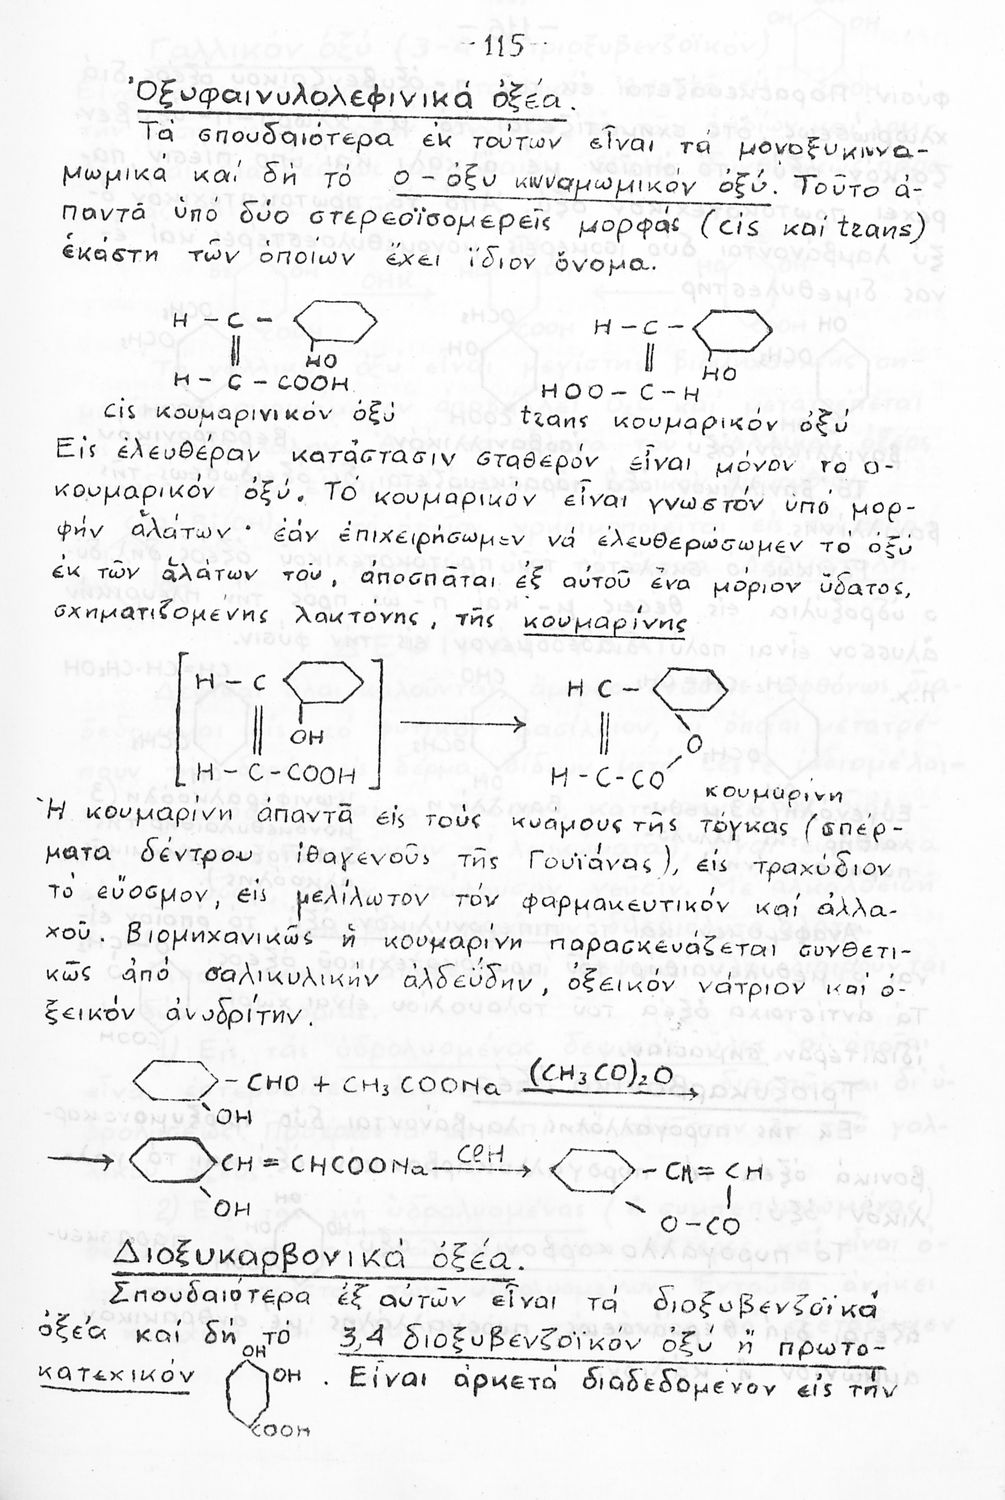 - 115 -
Ὀξυφαινυλολεφινικά ὀξέα.
Τά σπουδαιότερα ἐκ τούτων εἶναι τά μονοξυκιννα-
μωμικά καί δή τό ο-ὀξυ κινναμωμικόν ὀξύ. Τοῦτο ἀ-
παντᾶ ὑπό δύο στερεοϊσομερεῖς μορφάς (cis καί trans)
ἑκάστη τῶν ὁποίων ἔχει ἴδιον ὄνομα.
H - C -
HO
H - C - COOH
cis κουμαρινικόν ὀξύ
H - C -
HO
HOO - C - H
trans κουμαρικόν ὀξύ
Εἰς ἐλευθέραν κατάστασιν σταθερόν εἶναι μόνον το ο-
κουμαρικόν ὀξύ. Τό κουμαρικόν εἶναι γνωστόν ὑπό μορ-
φήν ἁλάτων · ἐάν ἐπιχειρήσωμεν νά ἐλευθερώσωμεν τό ὀξύ
ἐκ τῶν ἁλάτων του, ἀποσπᾶται ἐξ αυτοῦ ἕνα μόριον ὕδατος,
σχηματιζομένης λακτόνης, τῆς κουμαρίνης
H - C
OH
H - C - COOH
H C -
O
H - C - CO
κουμαρίνη
Ἡ κουμαρίνη ἀπαντᾶ εἰς τούς κυάμους τῆς τόγκας (σπέρ-
ματα δέντρου ἰθαγενοῦς τῆς Γουϊάνας), εἰς τραχύδιον
τό εὔοσμον, εἰς μελίλωτον τόν φαρμακευτικόν καί ἀλλα-
χοῦ. Βιομηχανικῶς ἡ κουμαρίνη παρασκευάζεται συνθετι-
κῶς ἀπό σαλικυλικήν ἀλδεΰδην, ὀξεικόν νάτριον καί ὀ-
ξεικόν ἀνυδρίτην.
- CHO + CH3COONa (CH3CO)2O
OH
CH = CHCOONa ClH - CH = CH
OH
O - CO
Διοξυκαρβονικά ὀξέα.
Σπουδαιότερα ἐξ αὐτῶν εἶναι τά διοξυβενζοϊκά
ὀξέα καί δή τό 3,4 διοξυβενζοϊκόν ὀξύ ἤ πρωτο-
κατεχικόν . Εἶναι ἀρκετά διαδεδομένον εἰς τήν
OH
OH
COOH